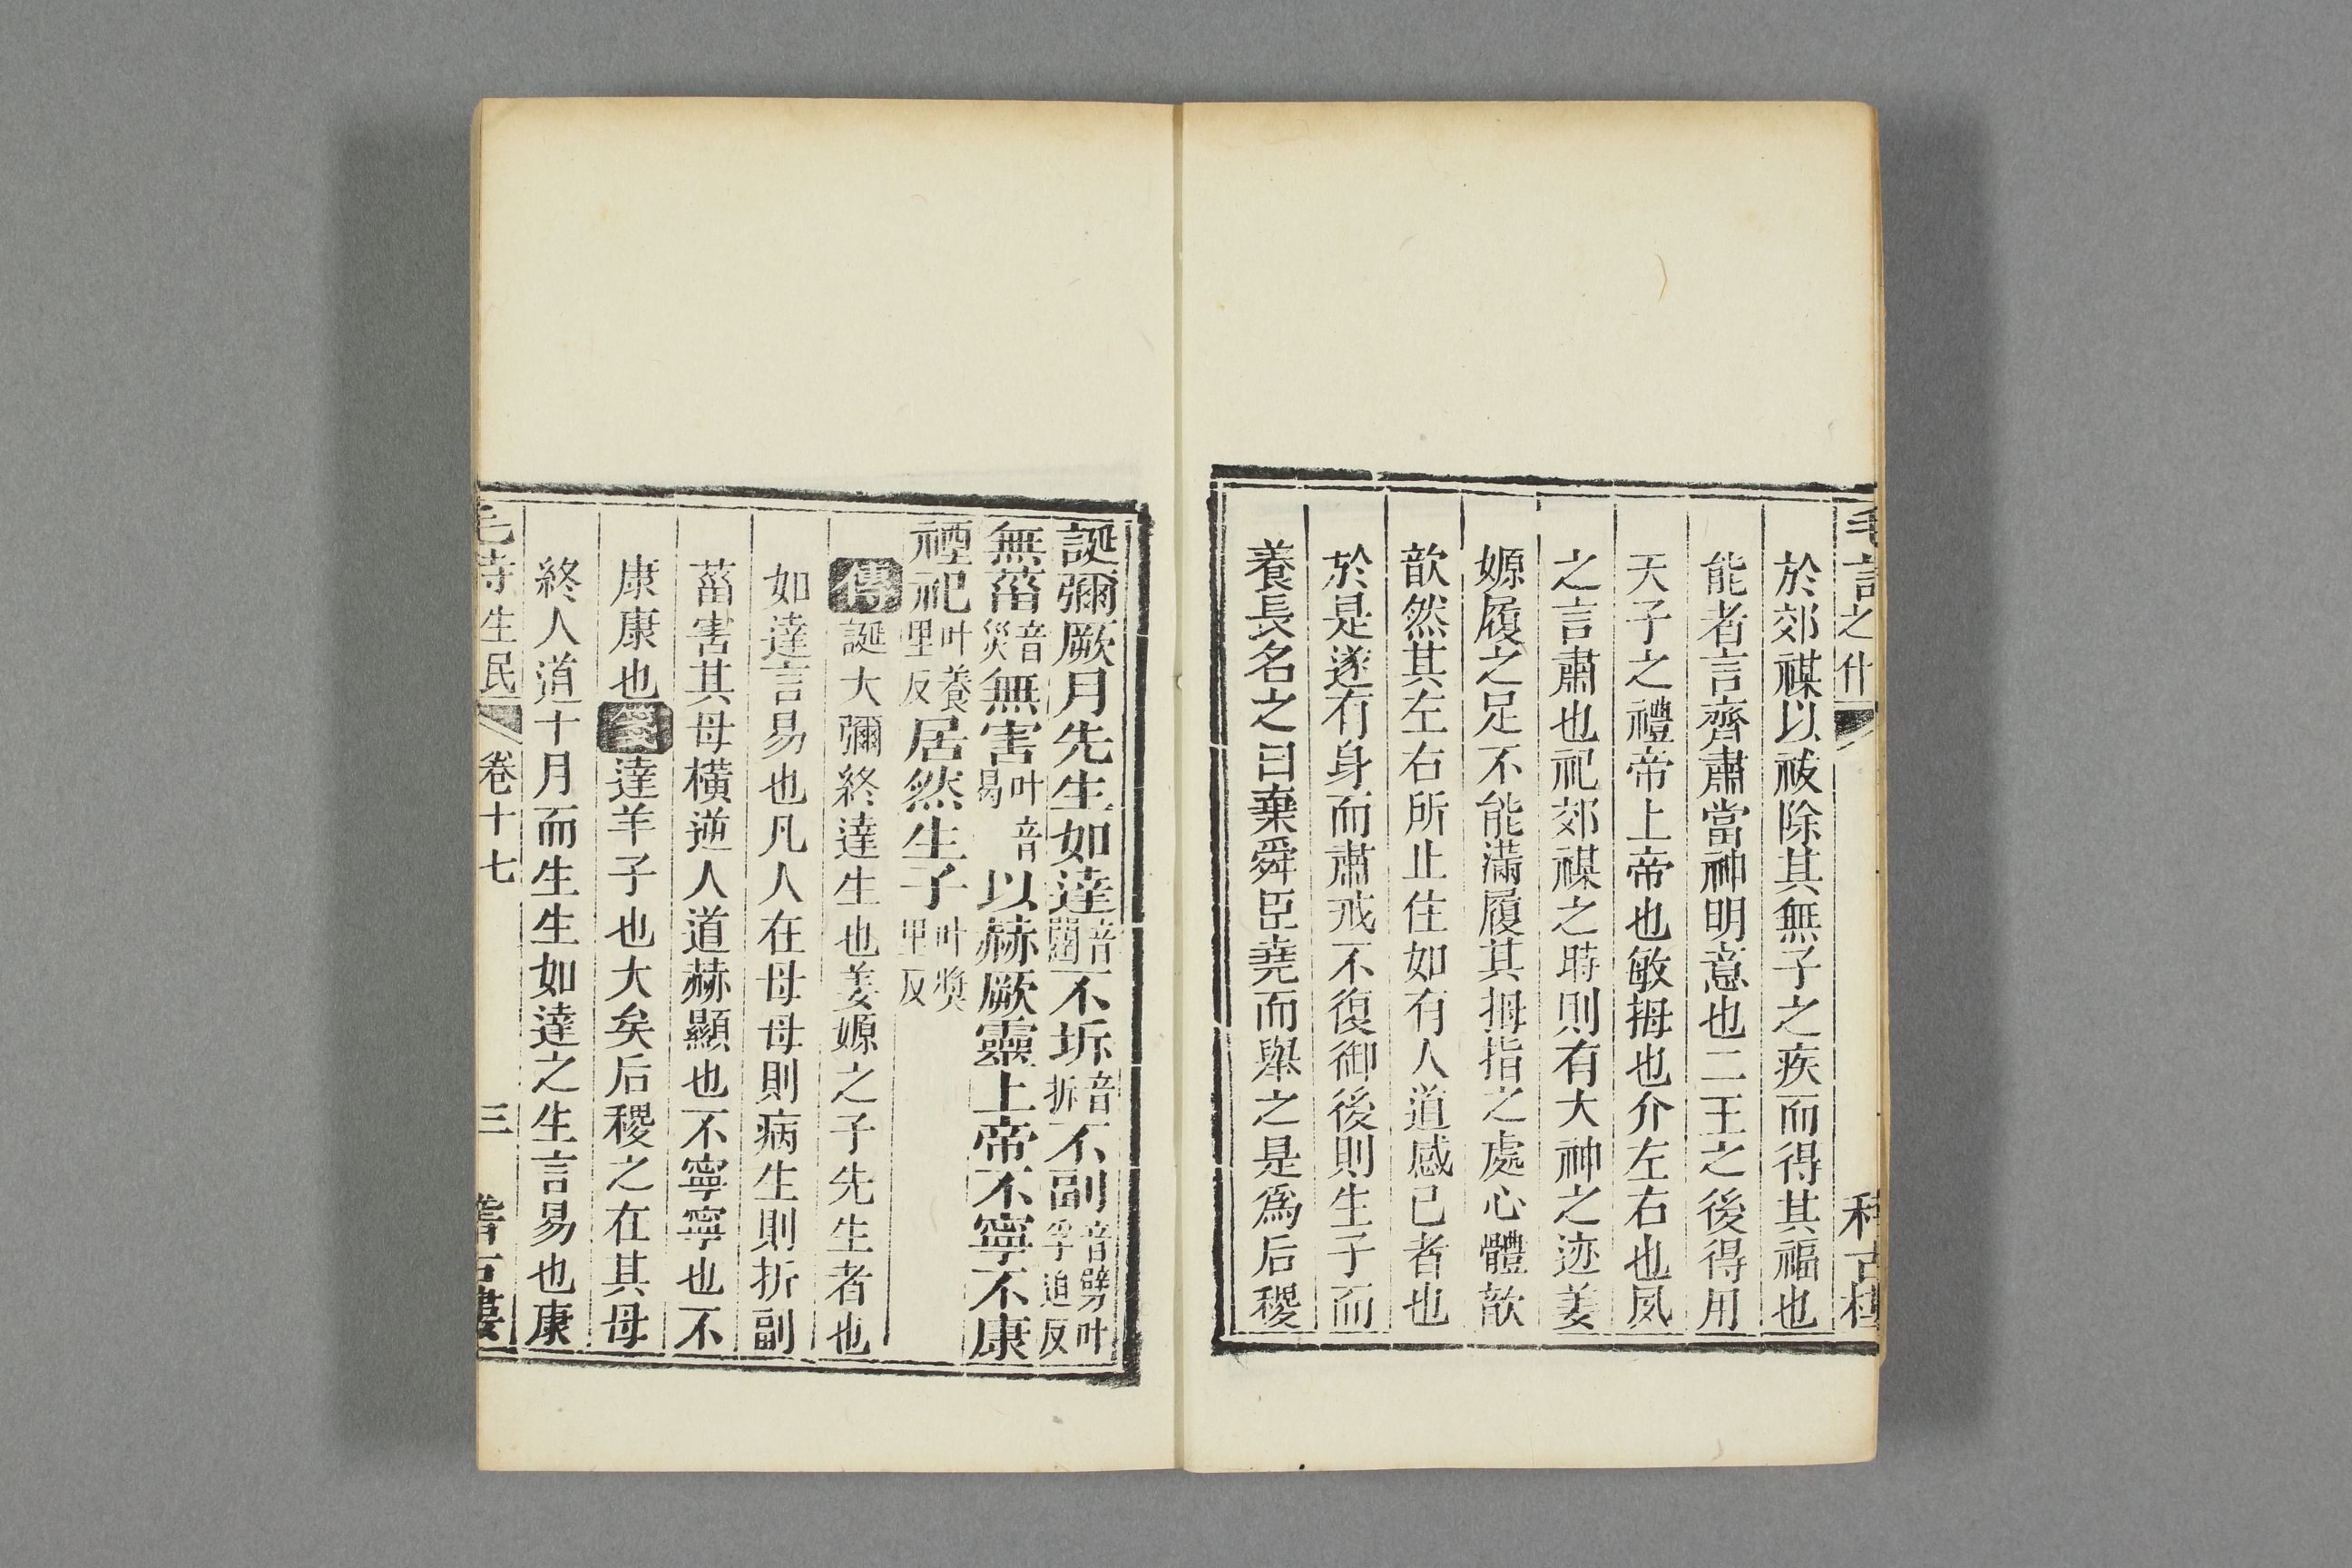 於郊禖以祓除其無子之疾而得其福也
能者言齊肅當神明意也二王之後得用
天子之禮帝上帝也敏拇也介左右也夙
之言肅也祀郊禖之時則有大神之迹姜
嫄履之足不能滿履其拇指之處心體歆
歆然其左右所止住如有人道感己者也
於是遂有身而肅戒不復御後則生子而
養長名之曰棄舜臣堯而舉之是爲后稷
誕彌厥月先生如達音闥不坼音拆不副音劈叶孚迫反
無菑音災無害叶音曷以赫厥靈上帝不寧不康
禋祀叶養里反居然生子叶奬里反
傳誕大彌終達生也姜嫄之子先生者也
如達言易也凡人在母母則病生則折副
菑害其母橫逆人道赫顯也不寧寧也不
康康也箋達羊子也大矣后稷之在其母
終人道十月而生生如達之生言易也康
毛詩生民 卷十七 三